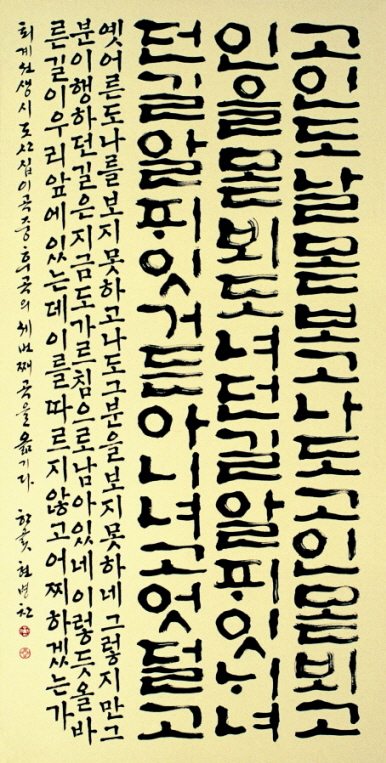 고인도날몯보고나도고인몯뵈고
인을몯뵈도녀던길알ᄑᆡ잇ᄂᆡ녀
던길알ᄑᆡ잇거든아니녀고엇털고
옛어른도나를보지못하고나도그분을보지못하네그렇지만그
분이행하던길은지금도가르침으로남아있네이렇듯올바
른길이우리앞에있는데이를따르지않고어찌하겠는가
퇴계선생시 도산십이곡중 후곡의 세번째곡을 옮기다 한곬 현병찬